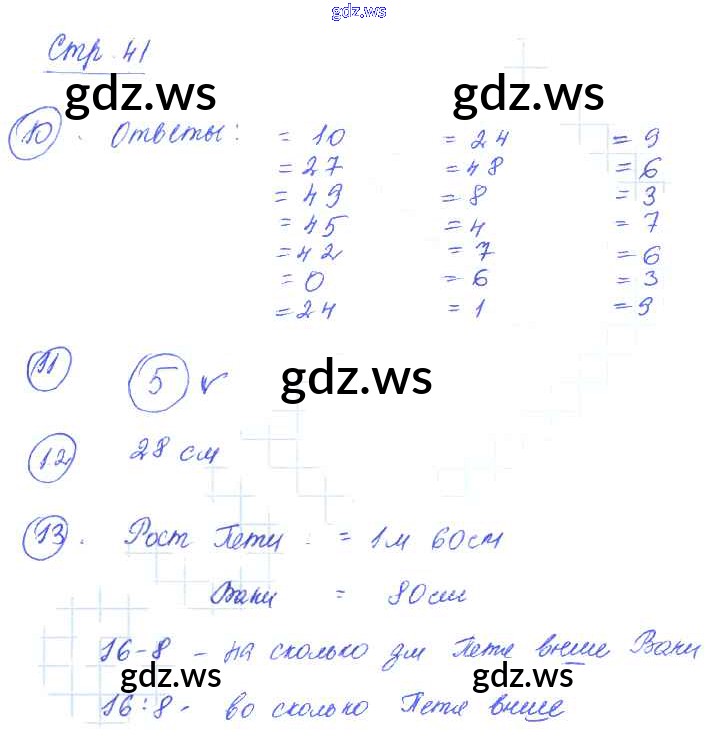 gdz.ws
Стр. 41
gdz.ws gdz.ws
10. Ответы: = 10 = 24 = 9
= 27 = 48 = 6
= 49 = 8 = 3
= 45 = 4 = 7
= 42 = 7 = 6
= 0 = 6 = 3
= 24 = 1 = 9
11 5 ✓ gdz.ws
12 28 см
13. Рост Пети : = 1м 60см
Вани = 80см
16-8 - на сколько дм Петя выше Вани
gdz.ws gdz.ws
16:8 - во сколько Петя выше